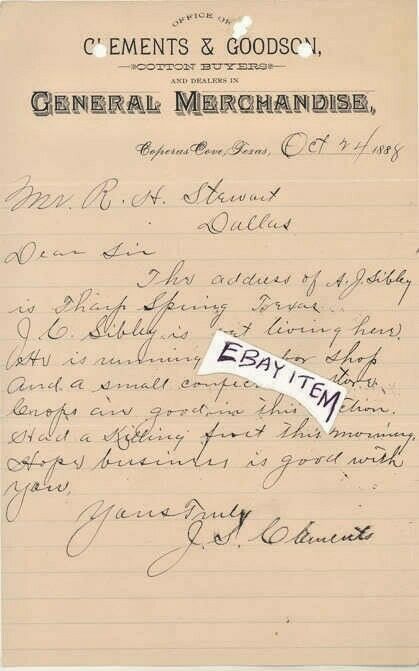 OFFICE OF
CLEMENTS & GOODSON,
COTTON BUYERS
AND DEALERS IN
GENERAL MERCHANDISE,
Coperas Cove, Texas, Oct 24 1888
Mr. R. H. Stewart
Dallas
Dear Sir
The address of A. J. Sibley
is Tharp Spring Texas
J. C. Sibley is living here.
He is running shop
And a small
EBAY ITEM
Crops are good in this
Had a Killing frost this morning
Hope business is good with
you.
Yours Truly
J. S. Clements